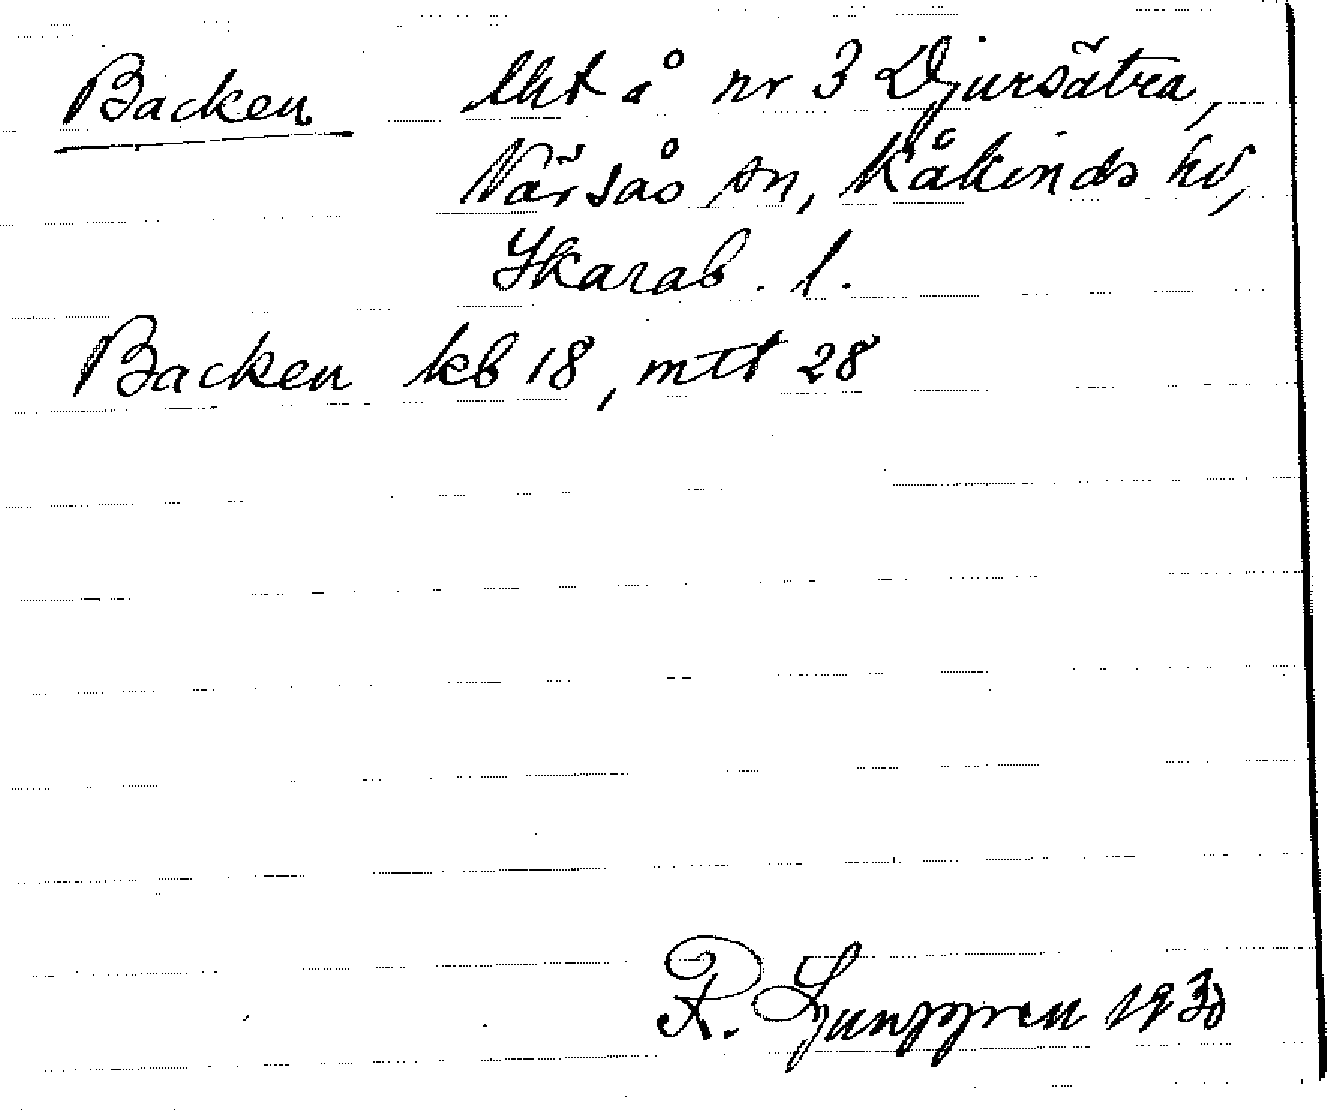 Backen lht å nr 3 Djursätra,
Värsås sn, Kåkinds hd,
Skarab. l.
Backen kb 18, mtl 28
R. Ljunggren 1930